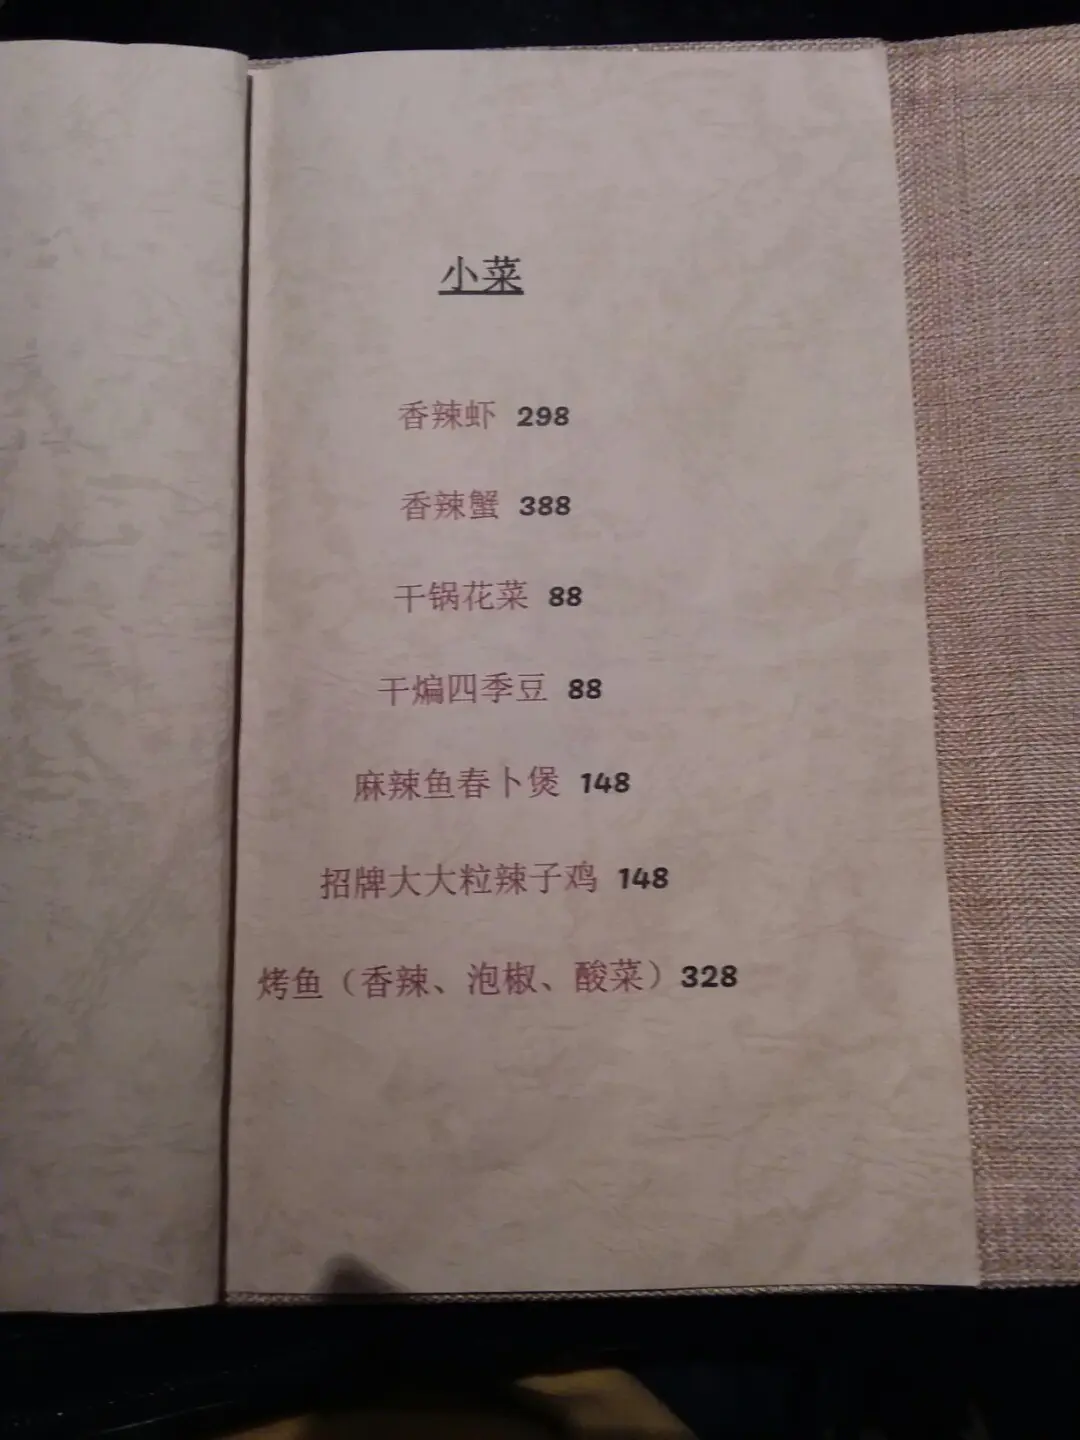 小菜
香辣虾 298
香辣蟹 388
干锅花菜 88
干煸四季豆 88
麻辣鱼春卜煲 148
招牌大大粒辣子鸡 148
烤鱼（香辣、泡椒、酸菜）328